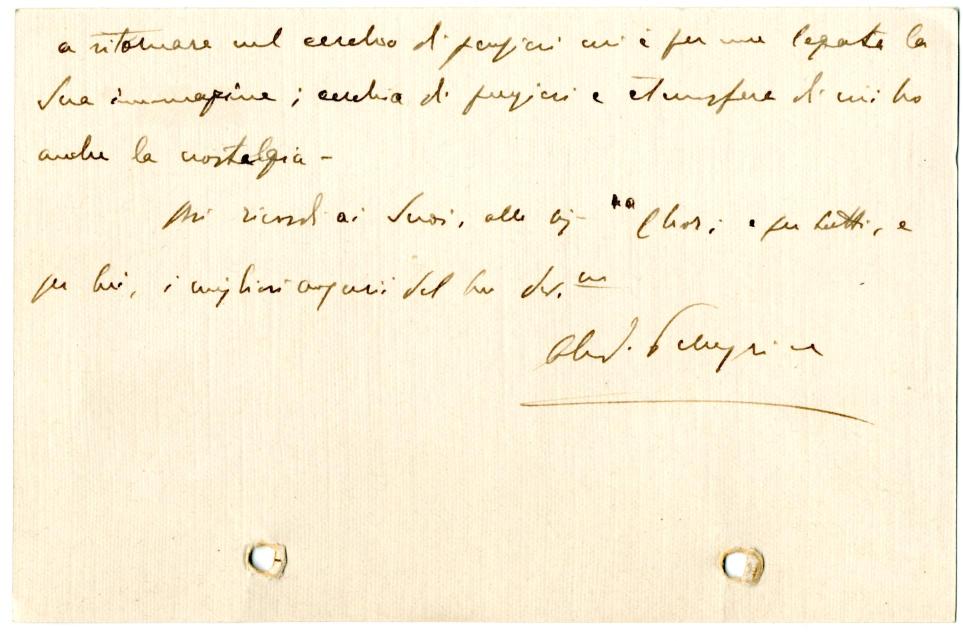 a ritornare nel cerchio di pensieri cui è per me legata la
Sua immagine; cerchia di pensieri e atmosfera di cui ho
anche la nostalgia -
Mi ricordi ai Suoi, alla; e per tutti, e
per Lei, i migliori auguri del Suo dev.mo